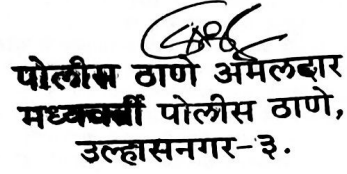 पोलीस ठाणे अमलदार
मध्यवर्ती पोलीस ठाणे,
उल्हासनगर-३.